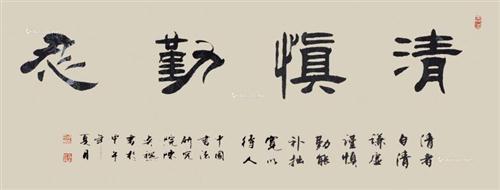 清慎勤忍
清者
自清
谦虚
谨慎
勤能
补拙
宽以
待人
中国
书法
研究
院陈
书於
甲午
年
夏月